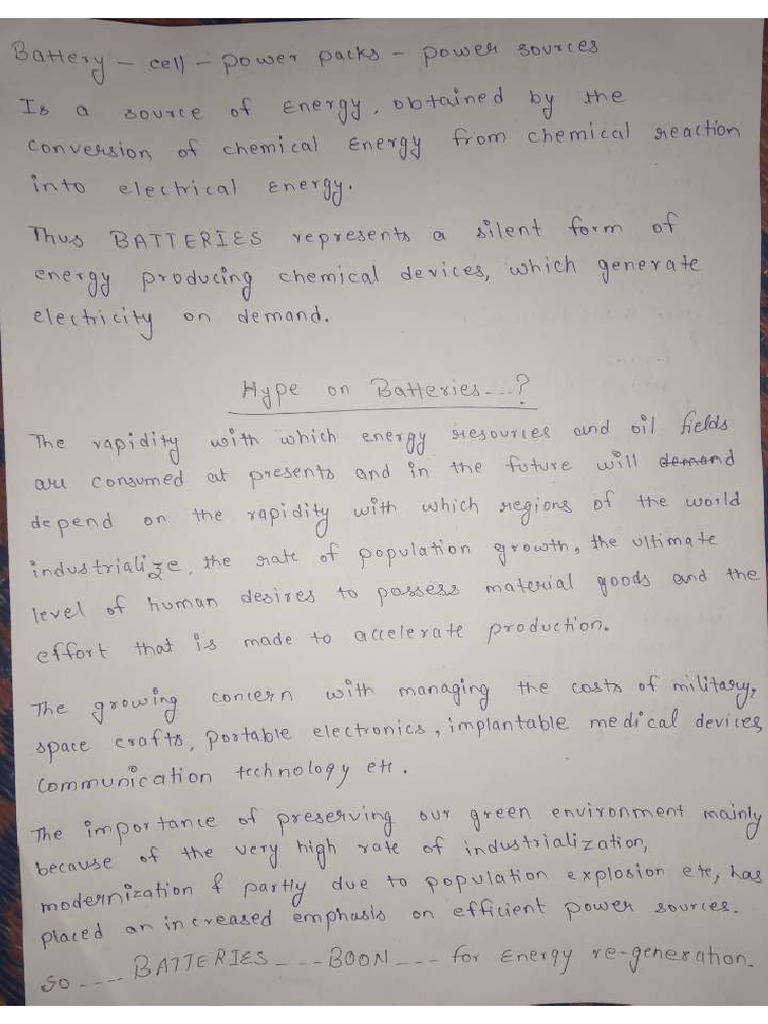 Battery - cell - power packs - power sources
Is a source of Energy, obtained by the
conversion of chemical Energy from chemical reaction
into electrical Energy.
Thus BATTERIES represents a silent form of
energy producing chemical devices, which generate
electricity on demand.
Hype on Batteries---?
The rapidity with which energy resources and oil fields
are consumed at presents and in the future will demand
depend on the rapidity with which regions of the world
industrialize, the rate of population growth, the ultimate
level of human desires to possess material goods and the
effort that is made to accelerate production.
The growing concern with managing the costs of military,
space crafts, portable electronics, implantable medical devices
communication technology etc.
The importance of preserving our green environment mainly
because of the very high rate of industrialization,
modernization & partly due to population explosion etc, has
placed an increased emphasis on efficient power sources.
so ---- BATTERIES --- BOON --- for Energy re-generation.